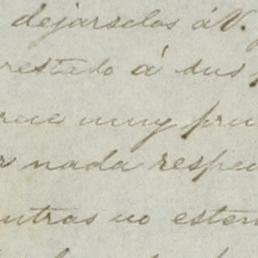 dejarselos á V.
restado á sus
muy pru
r nada respec
ntras no esten